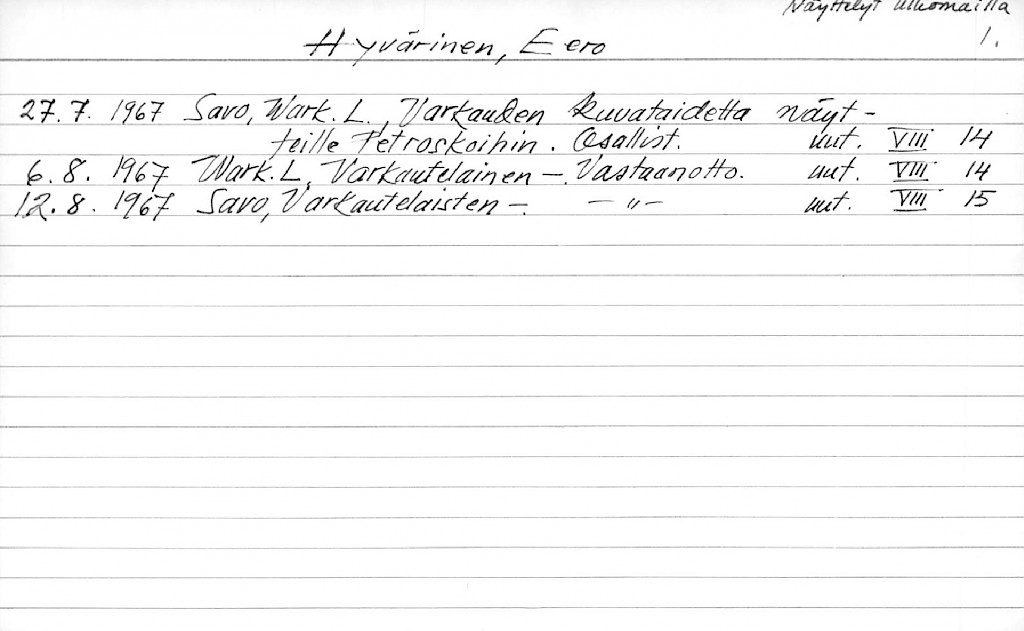 Näyttelyt ulkomailla
Hyvärinen, Eero 1.
27. 7. 1967 Savo, Wark. L., Varkauden kuvataidetta näyt-
teille Petroskoihin. Osallist. uut. VIII 14
6. 8. 1967 Wark. L. Varkautelainen -. Vastaanotto. uut. VIII 14
12. 8. 1967 Savo, Varkautelaisten -. - " - uut. VIII 15